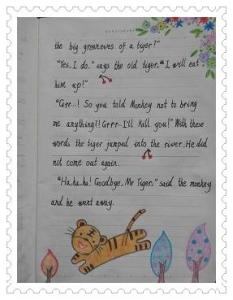 the big grooneves of a tiger?"
"Yes, I do." says the old tiger. "I will eat
him up!"
"Grr-! So you told Monkey not to bring
me anything?! Grrr-I'll kill you!" With these
words the tiger jumped into the river. He did
not come out again.
"Ha, ha, ha! Goodbye, Mr Tiger," said the monkey
and he went away.